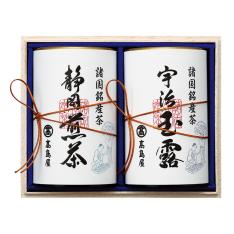 諸国銘産茶
宇治玉露
髙島屋
諸国銘産茶
静岡煎茶
髙島屋